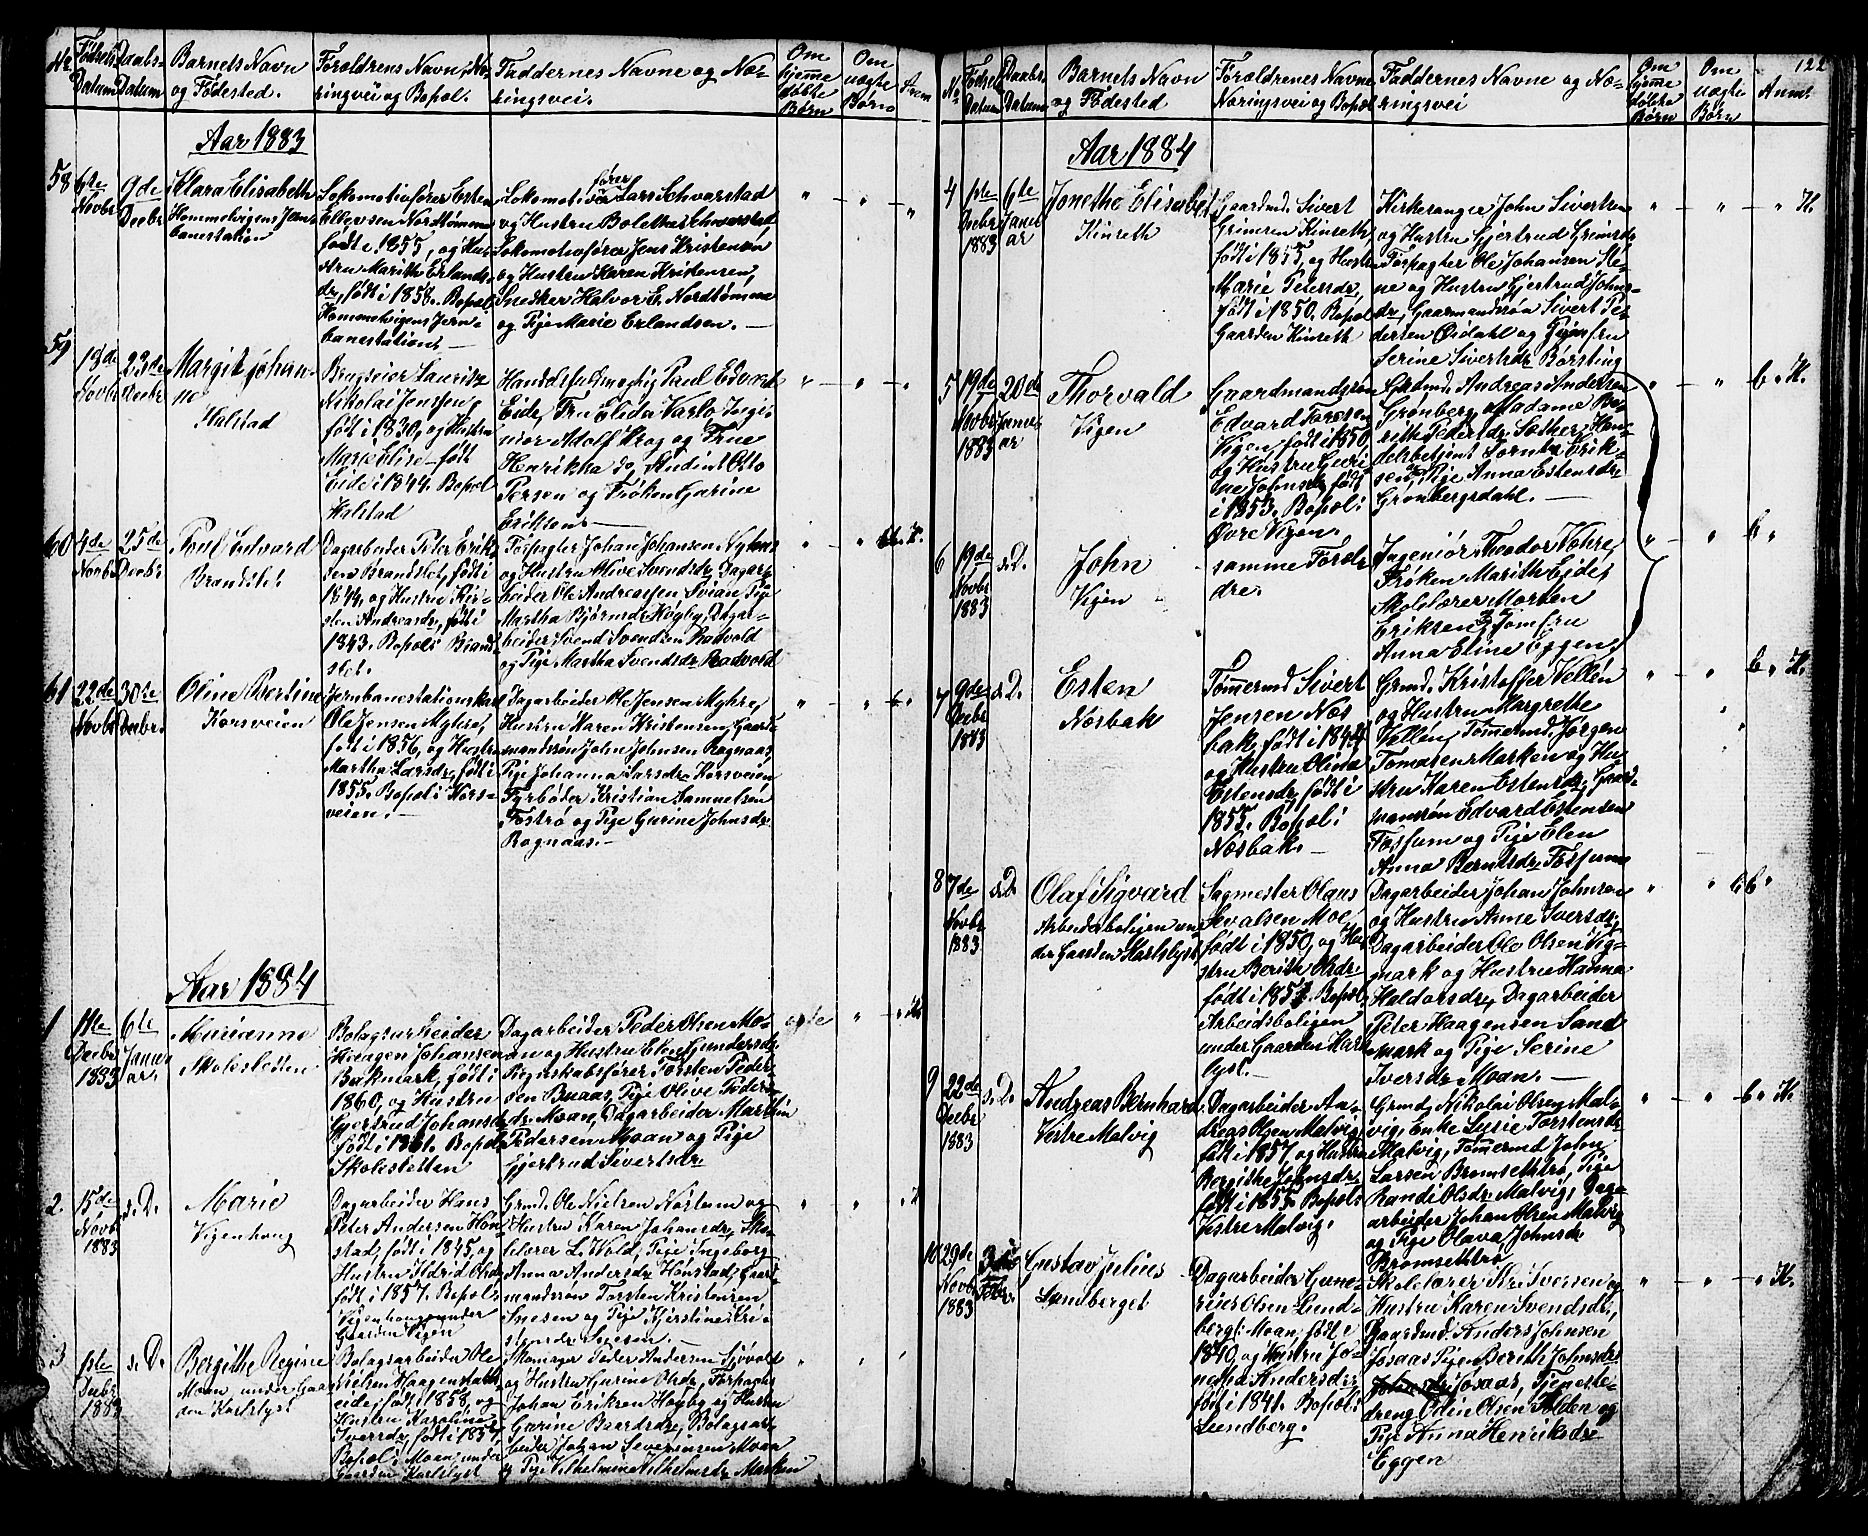 No
Fødsels-
Datum
Daabs-
Datum
Barnets Navn
og Fødested.
Forældrens Navn, Næ-
ringsvei og Bopæl.
Faddernes Navne og Næ-
ringsvei.
Om
hjemme
døbte
Børn
Om
uægte
Børn
Anm
Aar 1883
58
6te
Novbr
9de
Decbr
Klara Elisabeth
Hommelvigens Jern-
banestation
Lokomotivfører Esten
Ellevsen Nordtømme
født i 1855, og Hu-
stru Marith Erlands-
dr, født i 1858. Bopæl
Hommelvigens Jern-
banestation.
Lokomotivfører Lars Schvarstad
og Hustru Bolethe Schvarstad
Lokomotivfører Jens Kristensen
og Hustru Karen Kristensen,
Snedker Halvor E. Nordtømme
og Pige Marie Erlandsen.
59
13de
Novbr
23de
Decbr
Margit Johan-
ne
Halstad
Brugseier Lauritz
Nikolai Jenssen,
født i 1830, og Hustru
Marie Elise født
Eide i 1844. Bopæl
Halstad
Handelsfuldmægtig Paul Edvard
Eide, Fru Elida Varlo, Ingi-
niør Adolf Krog og Frue
Henrikka do, Student Otto
Persen og Frøken Gurine
Eriksen.
60
4de
Novbr
25de
Decbr
Poul Edvard
Brandslet
Dagarbeider Peter Erik-
sen Brandslet, født i
1844, og Hustru Kir-
sten Andreasdr, født i
1843. Bopæl: Brand-
slet.
Forpagter Johan Johansen Nyhus
og Hustru Olive Svendsdr, Dagar-
beider Ole Andreassen Svian Pige
Martha Bjørnsdr Høgby, Dagar-
beider Svend Svendsen Rødvold
og Pige Martha Svendsdr Rødvold
61
22de
Novbr
30te
Decbr
Oline Bertine
Korsveien
Jernbanestationskarl
Ole Jensen Myhre,
født i 1856, og Hustru
Martha Larsdr, født i
1855. Bopæl i Kors-
veien.
Dagarbeider Ole Jensen Myhre,
Hustru Karen Kristensen, Gaard-
mandssøn John Johnsen Rognaas
Pige Johanna Larsdr Korsveien
Fyrbøder Kristian Samuelsen
Fostrø og Pige Gurine Johnsdr
Rognaas.
Aar 1884
1
11te
Decbr
1883
6te
Janu-
ar
Marianne
Skolesletten
Bolagsarbeider
Haagen Johansen
Bakmark, født i
1860, og Hustru
Gjertrud Johansdr
født i 1861. Bopæl
Skolesletten
Dagarbeider Peder Olsen Mo-
an og Hustru Elen Gundersdr
Regnskabsfører Torsten Peder-
sen Bruaas, Pige Olive Peders-
dr Moan, Dagarbeider Martin
Pedersen Moan og Pige
Gjertrud Sivertsdr
2.
15de
Novbr
1883
s. D.
Marie
Vigenhaug
Dagarbeider Hans
Peter Andersen Hon-
stad, født i 1845, og
Hustru Ildrid Olsdr
født i 1857. Bopæl
Vigenhaug under
Gaarden Vigen
Grmd. Ole Nielsen Nostum og
Hustru Karen Johansdr, Sko-
lelærer L. Wold, Pige Ingeborg
Anna Andersdr Honstad, Gaard-
mandssøn Torsten Kristensen
Svesen og Pige Kjerstine Kri-
stensdr Svesen.
3
1ste
Decbr
1883
s. D.
Bergithe Regine
Moan, under Gaar-
den Karlslyst
Bolagsarbeider Ole
Nielsen Haagensæth-
eide, født i 1858, og
Hustru Karoline
Iversdr, født i 1857,
Bopæl i Moan, under
Gaarden Karlslyst
Skomager Peder Andersen Sjøvold
og Hustru Gurine Olsdr, Forpagter
Johan Eriksen Høyby og Hustru
Gurine Baardsdr, Bolagsar-
beider Johan Severensen Moan
og Pige Vilhelmine Vilhelmsdr Marken
122
No
Fødsels
Datum
Daabs-
Datum
Barnets Navn
og Fødested
Forældrenes Navne
Næringsvei og Bopæl
Faddernes Navne og Næ-
ringsvei
Om
hjemme
døbte
Børn
Om
uægte
Børn
Anm.
Aar 1884
4
1ste
Decbr
1883
6te
Janu-
ar
Jonetha Elisabet
Kinseth
Gaardmd. Sivert
Grimsen Kinseth,
født i 1855, og Hustru
Marie Petersdr,
født i 1850. Bopæl
Gaarden Kinseth
Kirkesanger John Sivertsen
og Hustru Gjertrud Grimsdr
Forpagter Ole Johansen Ste-
ne og Hustru Gjertrud Johns-
dr, Gaarmandssøn Sivert Pe-
dersen Øidahl og Jomfru
Serine Sivertsdr Børsting
5
19de
Novbr
1883
20de
Janu-
ar
Thorvald
Vigen
Gaardmandssøn
Edvard Larsen
Vigen, født i 1850
og Hustru Guri-
ne Johnsdr født
i 1853. Bopæl i
Øvre Vigen.
Grdmd. Andreas Andersen
Grønberg, Madame Be-
rith Pedersdr Sæther, Han-
delsbetjent Lornts Erik-
sen og Pige Anna Estensdr
Grønbergsdahl.
6
19de
Novbr
1883
s. D.
John
Vigen
samme Foræl-
dre.
Ingeniør Theodor Vohre,
Frøken Marith Eide,
Skolelærer Morten
Eriksen og Jomfru
Anna Eline Eggen.
7
9de
Decbr
1883
s. D.
Esten
Nosbak
Tømmermd Sivert
Jensen Nos-
bak, født i 1844
og Hustru Olina
Estensdr, født i
1855. Bopæl i
Nosbak.
Grmd. Kristoffer Vellen
og Hustru Margrethe
Vellen, Tømermd. Jørgen
Tomasen Marken og Hu-
stru Karen Estensdr, Gaard-
mansøn Edvard Estensen
Fosfum og Pige Elen
Anna Berntsdr Fosfum
8
7de
Novbr
1883
s. D.
Olaf Sigvard
Arbeiderboligen un-
der Gaarden Karlslyst
Sagmester Olaus
Sivalsen Moe,
født i 1850, og Hu-
stru Berith Olsdr
født i 1853. Bopæl
Arbeidsboligen
under Gaarden Karls-
lyst.
Dagarbeider Johan Johnsen
og Hustru Anne Iversdr,
Dagarbeider Ole Olsen Vig-
mark og Hustru Hanna
Haldorsdr, Dagarbeider
Peter Haagensen Sand-
mark og Pige Serine
Iversdr Moan.
9
22de
Decbr
1883
s. D.
Andreas Bernhard
Vestre Malvig
Dagarbeider An-
dreas Olsen Malvig
født i 1857 og Hustru
Bergithe Johnsdr,
født i 1855. Bopæl
Vestre Malvig.
Grmd. Nikolai Olsen Mal-
vig, Enke Lusie Torstensdr
Malvig, Tømermd John
Larsen Bromsethtrø, Pige
Randi Olsdr Malvig, Dag-
arbeider Johan Olsen Malvig
og Pige Olava Johnsdr
Bromsethtrø
10
29de
Novbr
1883
Febr.
Gustav Julius
Lundberget
Dagarbeider Gune-
rius Olsen Lund-
berg: Moan, født i
1840, og Hustru Jo-
netha Andersdr,
født i 1841. Bopæl:
Lundberg.
Skolelærer Kr. Svensen og
Hustru Karen Svendsdr,
Gaardmd. Anders Johnsen
Josaas, Pigen Berith Johnsdr
Josaas, Tjeneste-
dreng Odin Olsen Folden og
Pige Anna Henriksdr
Eggen